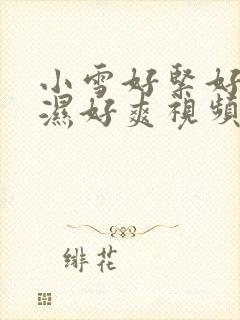 小雪好緊好
濕好爽視頻
緋花